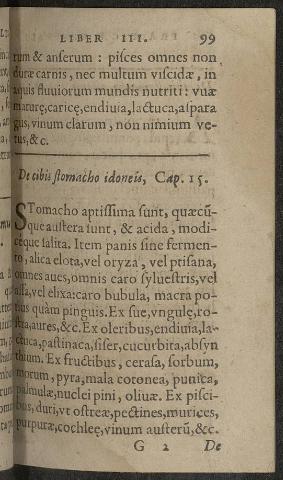 LIBER III. 99
rum & anserum : pisces omnes non
duræ carnis, nec multum viscidæ, in
aquis fluuiorum mundis nutriti : vuæ
maturę, caricę, endiuia, lactuca, aspara
gus, vinum clarum, non nimium ve-
tus, &c.
De cibis stomacho idoneis, Cap. 15.
STomacho aptissima sunt, quæcū-
que austera sunt, & acida, modi-
ceque salita. Item panis sine fermen-
to, alica elota, vel oryza, vel ptisana,
omnes aues, omnis caro syluestris, vel
assa, vel elixa: caro bubula, macra po-
tius quàm pinguis. Ex sue, vngulę, ro-
stra, aures, &c. Ex oleribus, endiuia, la-
ctuca, pastinaca, siser, cucurbita, absyn
thium. Ex fructibus, cerasa, sorbum,
morum, pyra, mala cotonea, punica,
palmulæ, nuclei pini, oliuæ. Ex pisci-
bus, duri, vt ostreæ, pectines, murices,
purpuræ, cochleę, vinum austerū, &c.
G 2 De